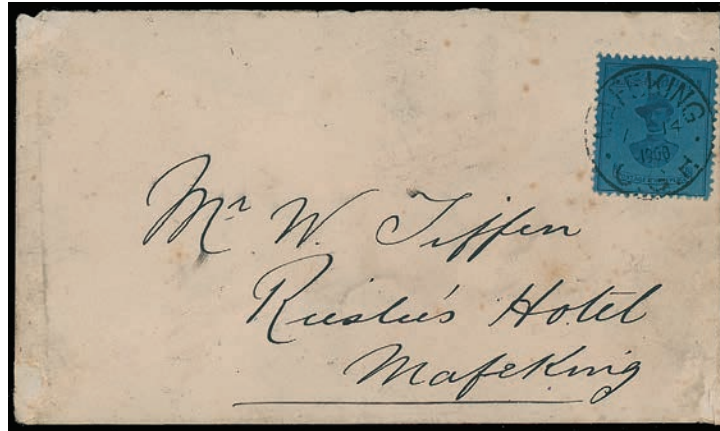 MAFEKING
1900
C.G.H.
Mr W. Tiffen
Riesle's Hotel
Mafeking